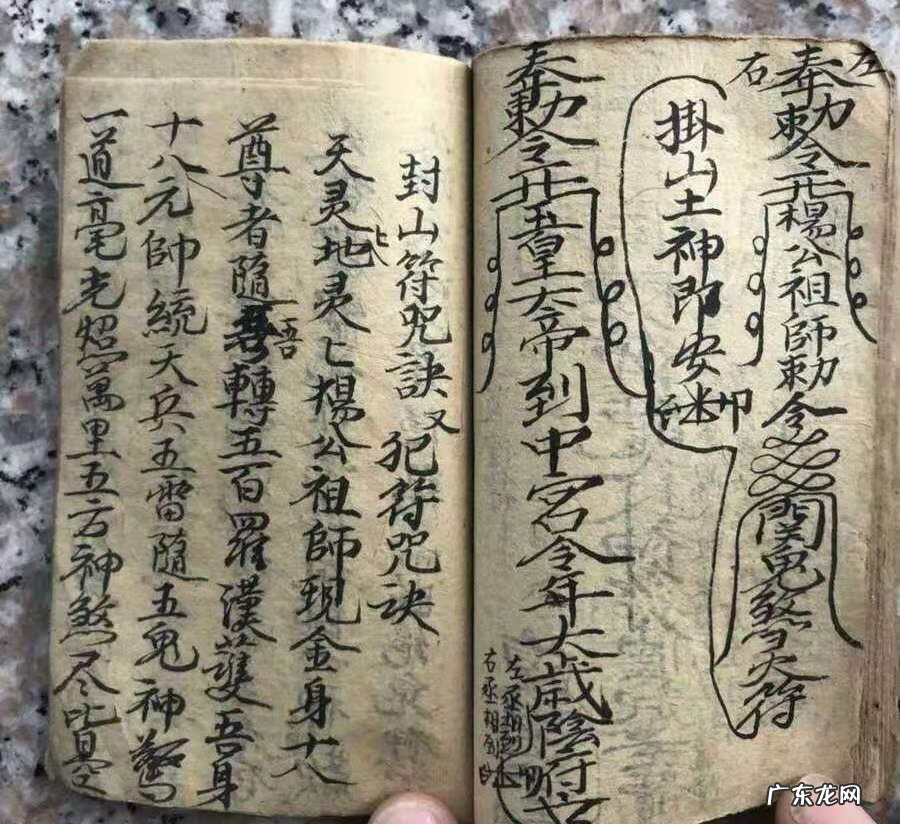 左
右
奉勅令 楊公祖師勅令 関鬼煞大符
掛山土神即安
印
奉勅令 玉皇大帝到中宮令年太歲陰府
左丞相到
右丞相到
封山符咒訣又犯符咒訣
天灵地灵匕楊公祖師現金身十八
尊者隨吾轉五百羅漢護吾身
十八元帥統天兵五雷隨五鬼神驚
一道毫光照萬里五方神煞尽
广东龙网